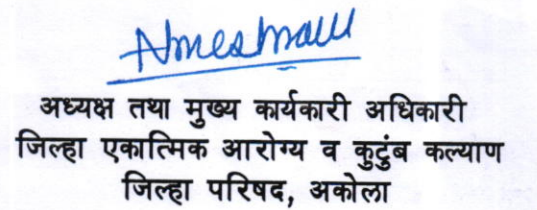 अध्यक्ष तथा मुख्य कार्यकारी अधिकारी
जिल्हा एकात्मिक आरोग्य व कुटुंब कल्याण
जिल्हा परिषद, अकोला